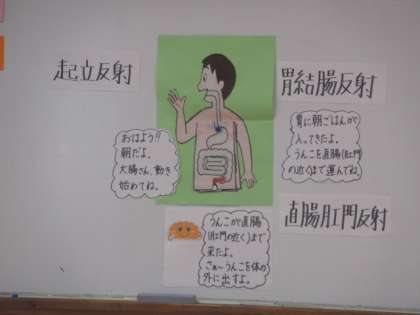 起立反射
胃結腸反射
おはよう!!
朝だよ。
大腸さん、動き
始めてね。
胃に朝ごはんが
入ってきたよ。
うんこを直腸(肛門
の近く)まで運んでね。
直腸肛門反射
うんこが直腸
(肛門の近く)まで
来たよ。
さぁ〜うんこを体の
外に出すよ。